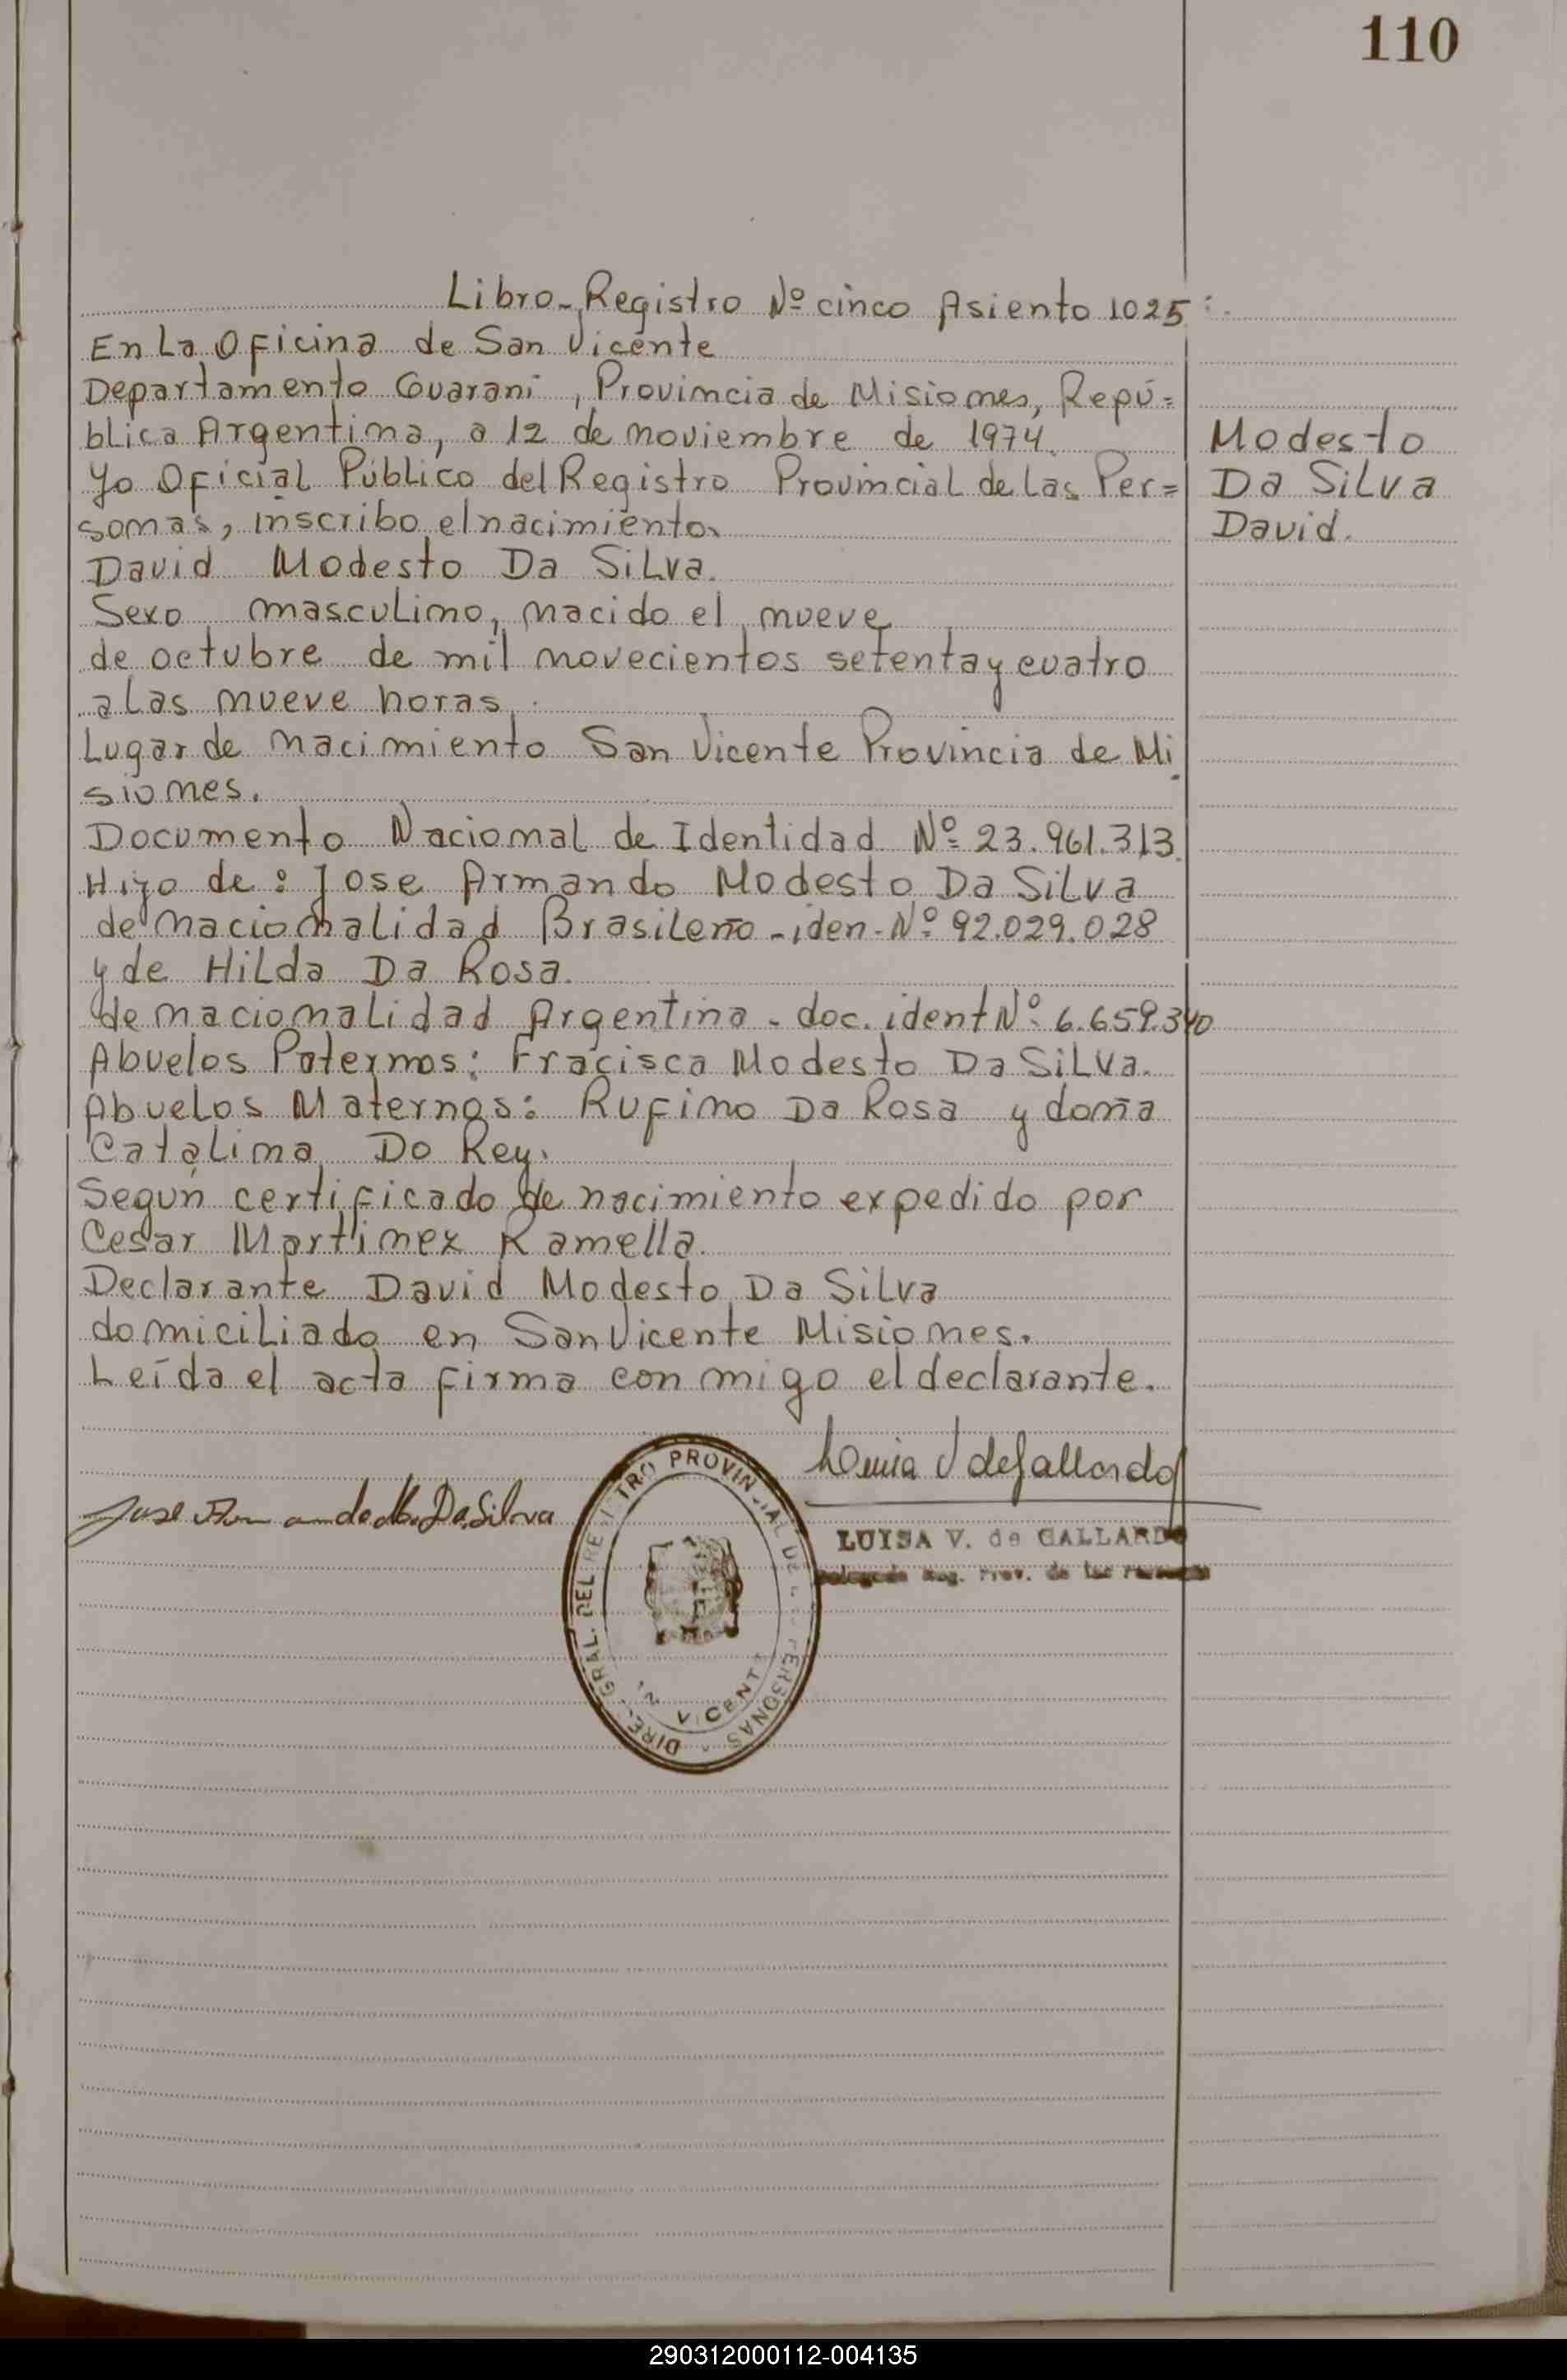 110
Libro-Registro Nº cinco Asiento 1025:
En La Oficina de San Vicente
Departamento Guarani, Provincia de Misiones, Repú=
blica Argentina, a 12 de noviembre de 1974.
Modesto
Yo Oficial Público del Registro Provincial de Las Per=
Da Silva
sonas, inscribo el nacimiento
David.
David Modesto Da Silva.
Sexo masculino, nacido el nueve
de octubre de mil novecientos setenta y cuatro
a Las nueve horas.
Lugar de nacimiento San Vicente Provincia de Mi
siones.
Documento Nacional de Identidad Nº 23.961.313.
Hijo de: Jose Armando Modesto Da Silva
de nacionalidad Brasileño - iden. Nº 92.029.028
y de Hilda Da Rosa.
de nacionalidad Argentina - doc. ident Nº 6.659.340
Abuelos Paternos: Fracisca Modesto Da Silva.
Abuelos Maternos: Rufino Da Rosa y doña
Catalina Do Rey.
Segun certificado de nacimiento expedido por
Cesar Martinez Ramella.
Declarante David Modesto Da Silva
domiciliado en San Vicente Misiones.
Leída el acta firma con migo el declarante.
Luisa V de Gallardo
Jose Armando M. Da Silva
LUISA V. de GALLARDO
Reg. Prov. de las Personas
DIREC. GRAL. DEL REGISTRO PROVINCIAL DE LAS PERSONAS
VICENTE
290312000112-004135